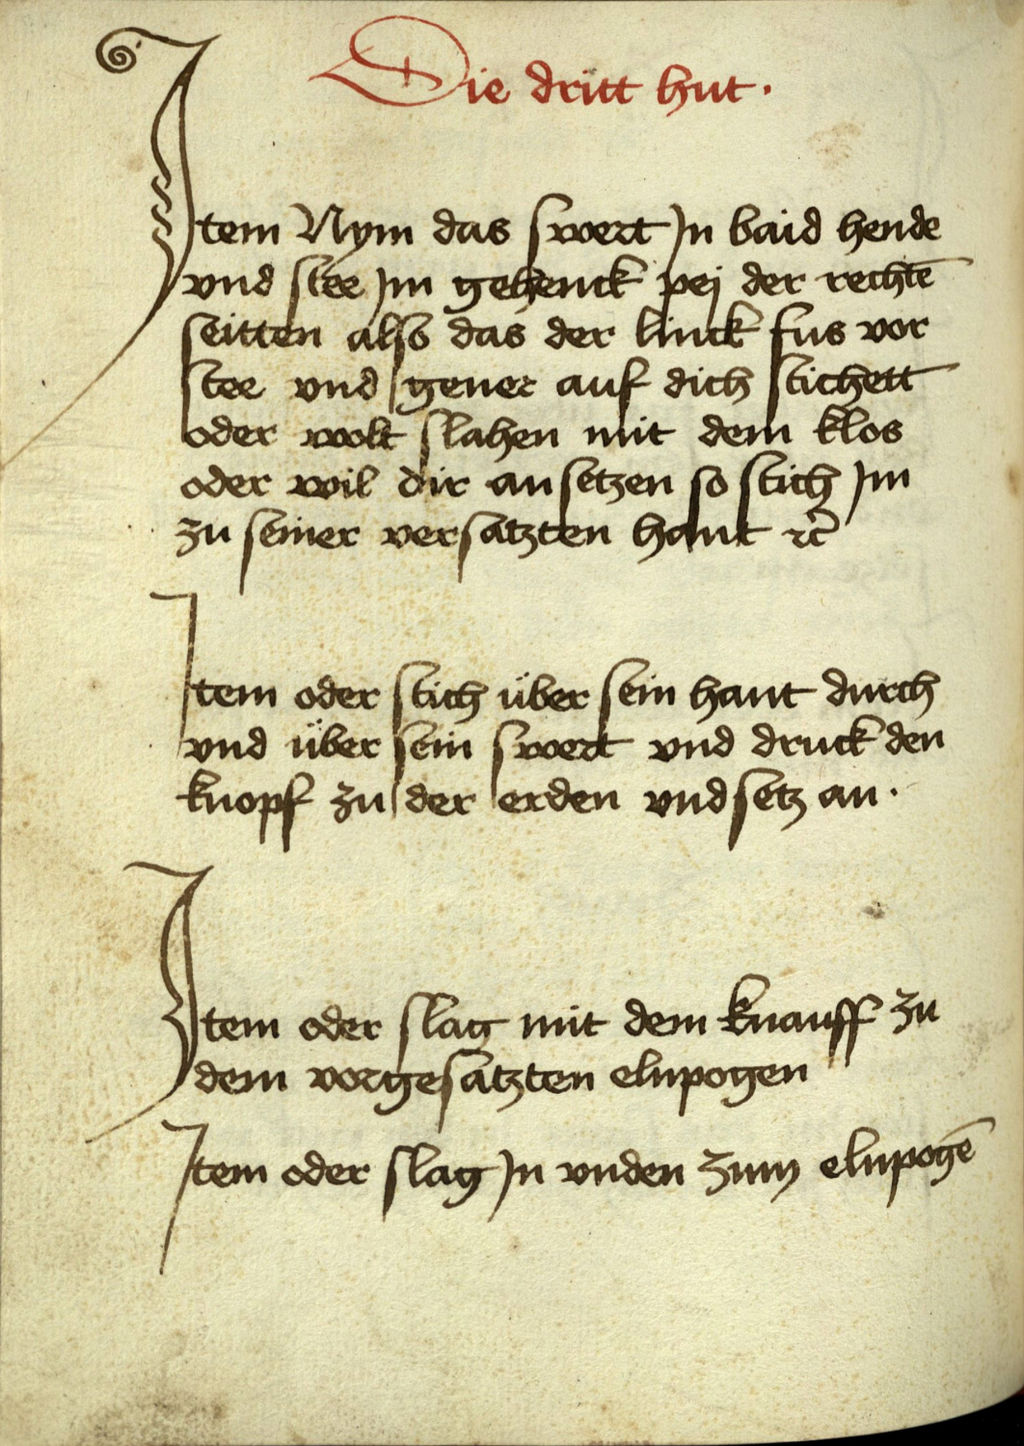 Die dritt hut.
Item Nym das swert Jn baid hende
vnd stee Jm gehenck pej der rechtē
seitten also das der linck fus vor
stee vnd gener auf dich stichett
oder wolt slahen mit dem klos
oder wil dir an setzen so stich Jm
zu seiner versatzten hant ꝛc̄
Item oder stich über sein hant durch
vnd über sein swert vnd druck den
knopf zu der erden vnd setz an.
Item oder slag mit dem knauff zu
dem vorgesatzten elnpogen
Item oder slag Jn vnden zum elnpogē